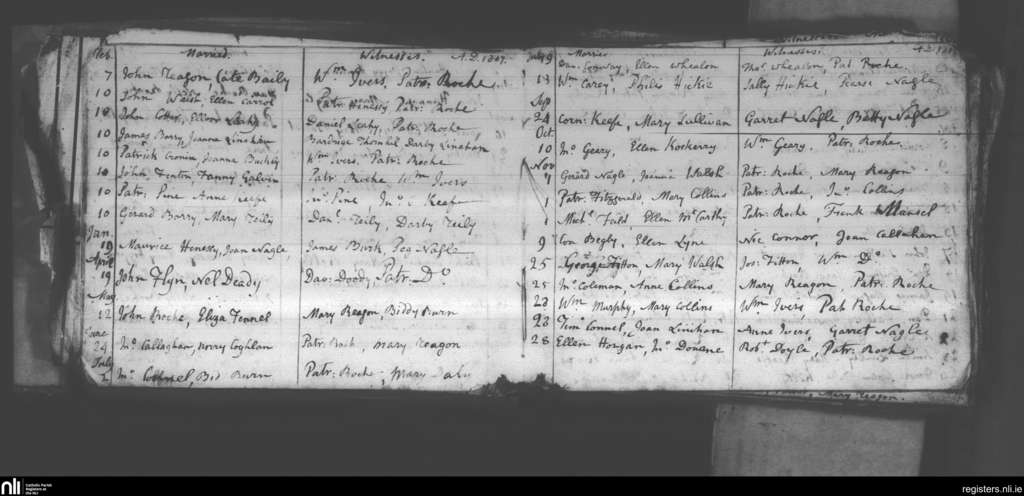 Feb. Married. Witnesses. A.D. 1807.
7 John Reagon Cate Baily Wm Ivers, Patr: Roche.
10 John Walsh, Ellen Carrol Patr: Henessy Patr: Roche
10 John Cotter, Ellen Leahy Daniel Leahy, Patr: Roche
10 James Barry, Joanna Linehan Darby Linehan
10 Patrick Cronin, Joanna Buckly Wm Ivers, Patr: Roche
10 John Fenton, Fanny Galvin Patr: Roche Wm Ivers
10 Patr: Pine Anne Keefe Pine, Jno: Keefe
10 Gerard Barry, Mary Reily Danl Reily, Darby Reily
Jan.
19 Maurice Henessy, Joan Nagle, James Burk Peg Nagle
April
19 John Flyn, Nel Deady Dav: Doody, Patr: Do
May
12 John Roche, Eliza Fennel Mary Reagon, Biddy Burn
June
24 Jno: Callaghan, Norry Coghlan Patr: Roch, Mary Reagon
July
2 Jno: Connel, Bid Burn Patr: Roche, Mary Daly
Married Witnesses: A.D. 1807
19 Dan: Conway, Ellen Whealon Thos. Whealon, Pat Roche.
13 Wm Carey, Philis Hickie Sally Hickie, Pearse Nagle
Sept
24 Corn: Keefe, Mary Sullivan Garret Nagle, Betty Nagle
Oct
10 Jno: Geary, Ellen Wm Geary, Patr: Roche.
Nov
Gerard Nagle, Joanna Walsh Patr: Roche, Mary Reagon
1 Patr: Fitzgerald, Mary Collins Patr: Roche, Jno: Collins
1 Michl Ellen McCarthy Patr: Roche, Frank Mansel
9 Con Begly, Ellen Lyne Nic Connor, Joan Callahan
25 George Fitton, Mary Walsh Jos: Fitton, Wm Do
25 Jno: Coleman, Anne Collins Mary Reagon, Patr: Roche
23 Wm Murphy, Mary Collins Wm Ivers, Pat Roche
23 Tim Connel, Joan Linihan Anne Ivers, Garret Nagle
28 Ellen Horgan, Jno: Douane Robt Doyle, Patr: Roche
Mary Reagon.
nli
Catholic Parish
Registers at
the NLI
registers.nli.ie